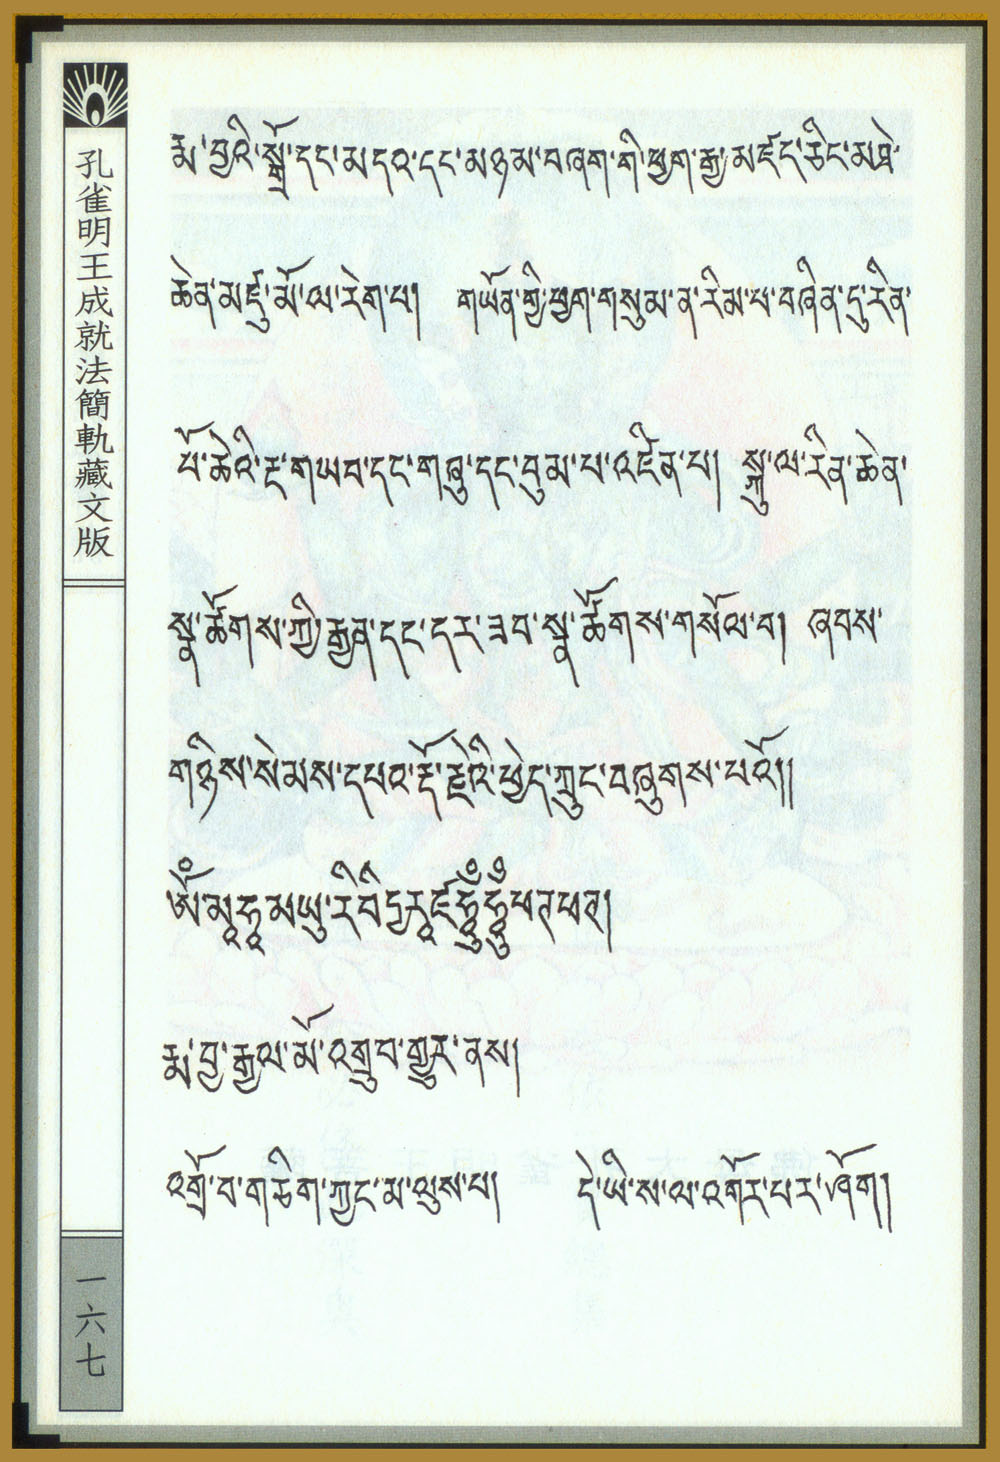 孔雀明王成就法簡軌藏文版
རྨ་བྱའི་སྒྲོ་དང་མདའ་དང་མཉམ་བཞག་གི་ཕྱག་རྒྱ་མཛད་ཅིང་མཐེ་
ཆེན་མཛུ་མོ་ལ་རེག་པ། གཡོན་གྱི་ཕྱག་གསུམ་ན་རིམ་པ་བཞིན་དུ་རིན་
པོ་ཆེའི་རྔ་གཡབ་དང་གཞུ་དང་བུམ་པ་འཛིན་པ། སྐུ་ལ་རིན་ཆེན་
སྣ་ཚོགས་ཀྱི་རྒྱན་དང་དར་ཟབ་སྣ་ཚོགས་གསོལ་བ། ཞབས་
གཉིས་སེམས་དཔའ་རྡོ་རྗེའི་ཕྱེད་ཀྲུང་བཞུགས་པའོ།།
རྨ་བྱ་རྒྱལ་མོ་འགྲུབ་གྱུར་ནས།
འགྲོ་བ་གཅིག་ཀྱང་མ་ལུས་པ། དེ་ཡི་ས་ལ་འགོར་པར་ཤོག།
一六七